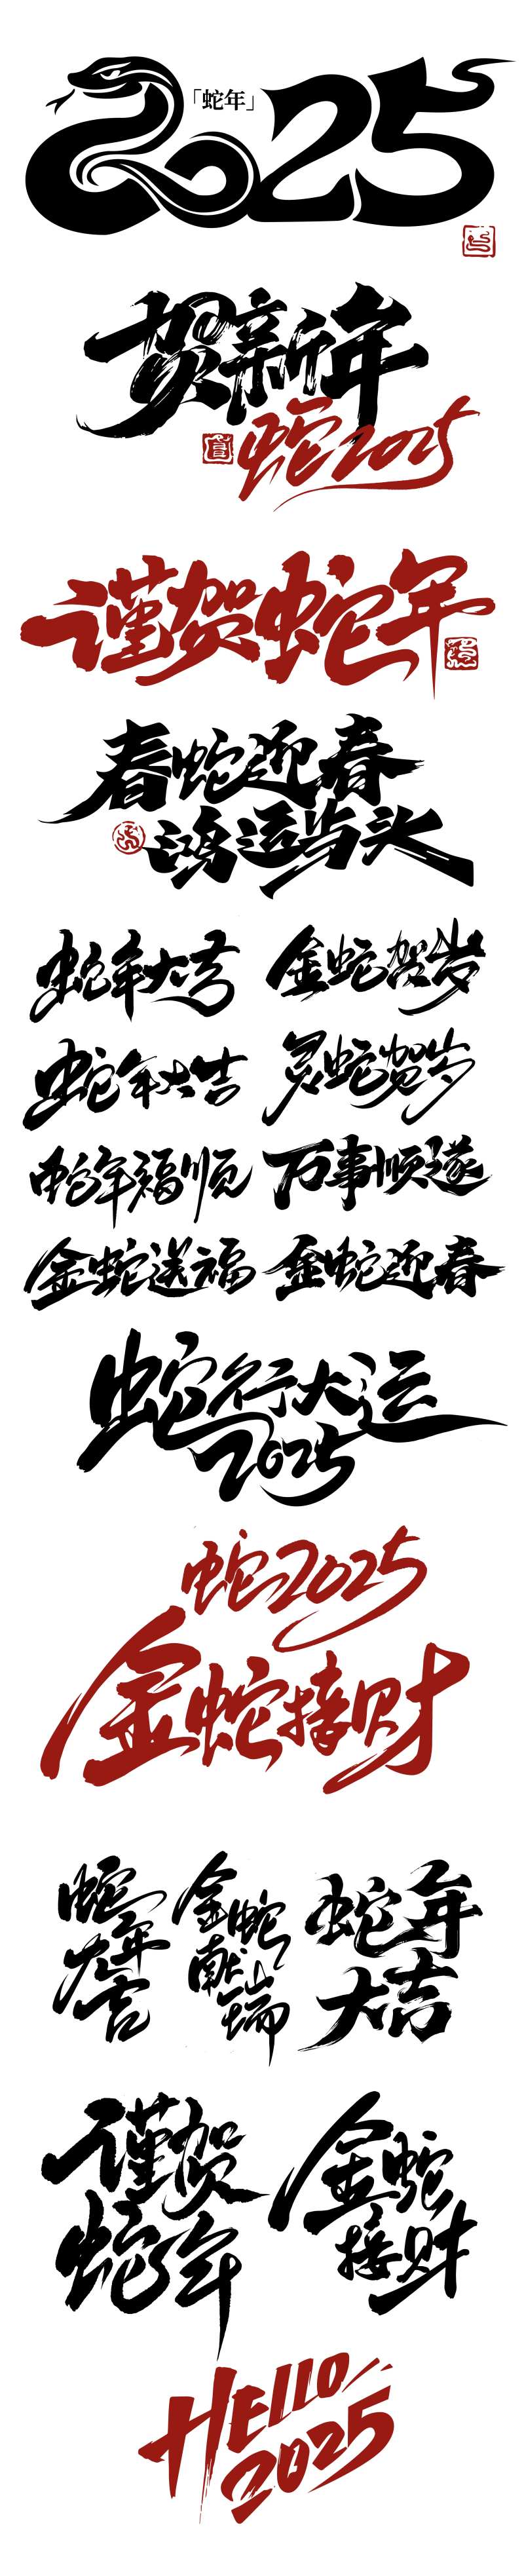 2025
「蛇年」
贺新年
蛇2025
谨贺蛇年
春蛇迎春
鸿运当头
蛇年大吉
金蛇贺岁
蛇年大吉
灵蛇贺岁
蛇年福顺
万事顺遂
金蛇送福
金蛇迎春
蛇行大运
2025
蛇2025
金蛇接财
蛇年大吉
金蛇献瑞
蛇年
大吉
谨贺
蛇年
金蛇
接财
HEllO
2025